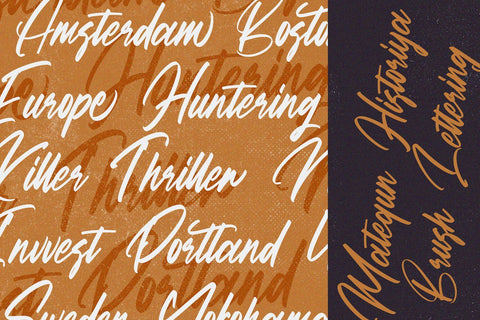 Amsterdam Bosto
Europe Huntering
Killer Thriller
Invest Portland
Sweden Yokohama
Matequn Historiya
Brush Lettering